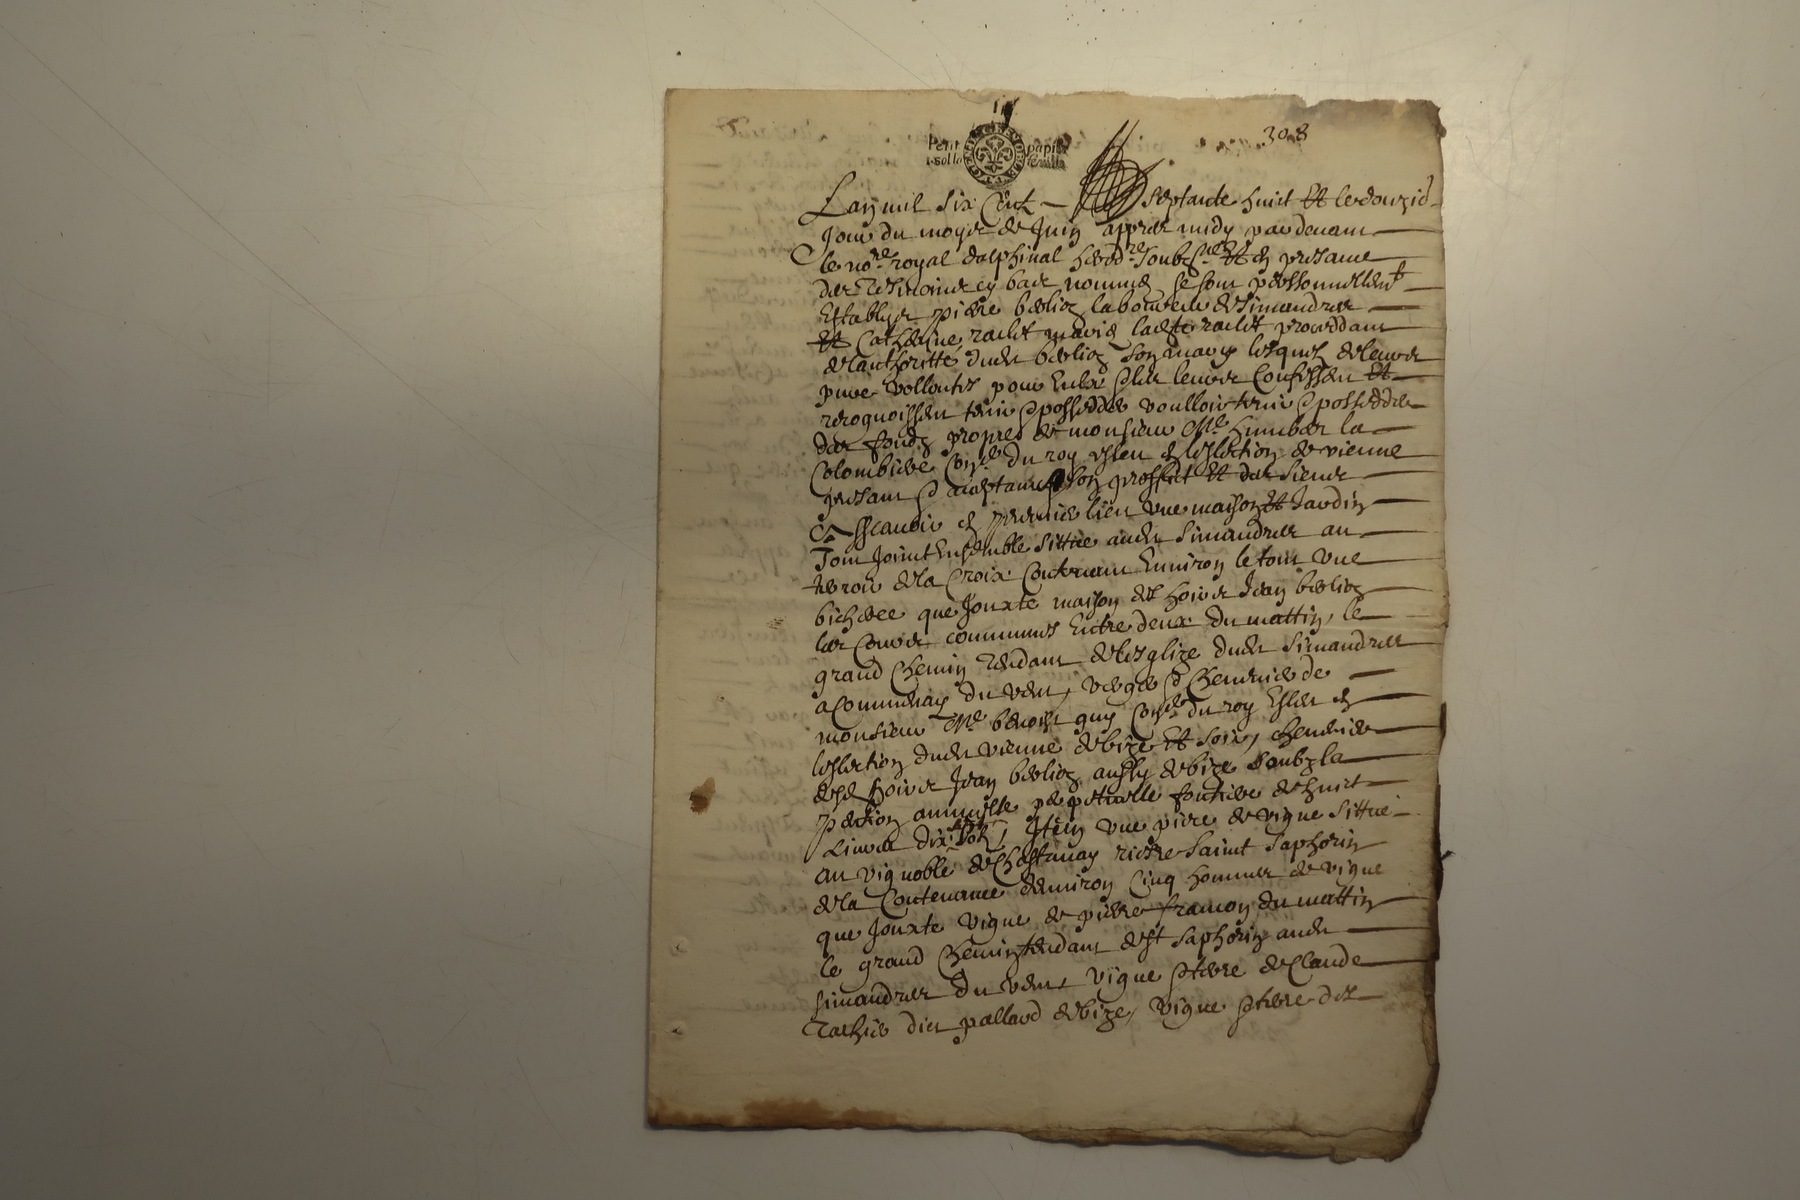 308
Petit papier
1 sol la feuille
Lan mil six cent septante huict et le douzie
jour du moys de juin appres midy par devant
le no.re royal dalphinal hered.re soubz.né et en presance
des tesmoins cy bas nommes se sont personnellem.t
establys pierre berlioz laboureur de simandres
et catherine raclet mariés ladite raclet proceddant
de lauthoritté dudit berlioz son mary lesquelz de leurs
pures vollontes pour eulx et les leurs confessent et
recoignoissent tenir et posseder voulloir tenir et posseder
des fondz propres de monsieur Me humber la
colombiere con.er du roy esleu en leslection de vienne
presant et acceptant son proffict et des siens
Asscavoir en premier lieu une maison et jardin
joint ensemble sittue audit simandres au
terroir de la croix contenant environ le tout une
bicheree que jouxte maison des hoirs jean berlioz
les cours communes entre deux du mattin, le
grand chemin tendant de lesglize dudit simandres
a communay du vent, verger et cheneviere de
monsieur Me benoist guy con.er du roy esleu en
leslection dudit vienne de bize et soir, cheneviere
desd hoirs jean berlioz aussy de bize soubz la
pention annuelle perpetuelle fonciere de huict
livres dix solz, Item une piece de vigne sittue
au vignoble de chastanay riere saint saphorin
de la contenance denviron cinq hommes de vigne
que jouxte vigne de pierre framon du mattin
le grand chemin tendant de st saphorin audit
simandres du vent vigne et terre de claude
dict pallard de bize, vigne et terre des